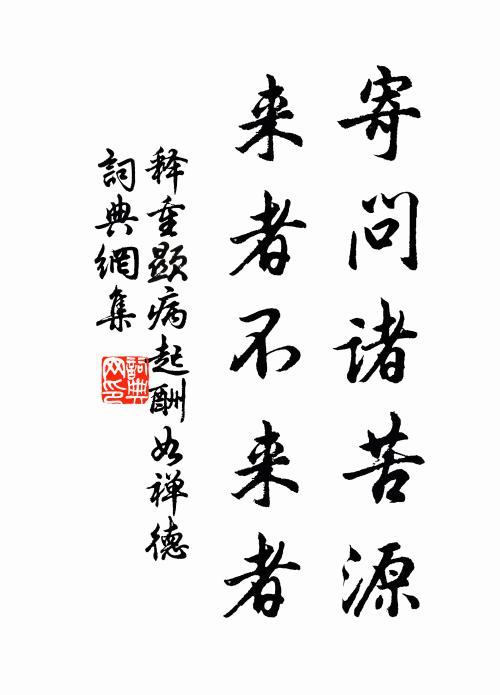 寄问諸苦源
来者不来者
释重顯病起酬如禅德
詞典網集
詞典网印